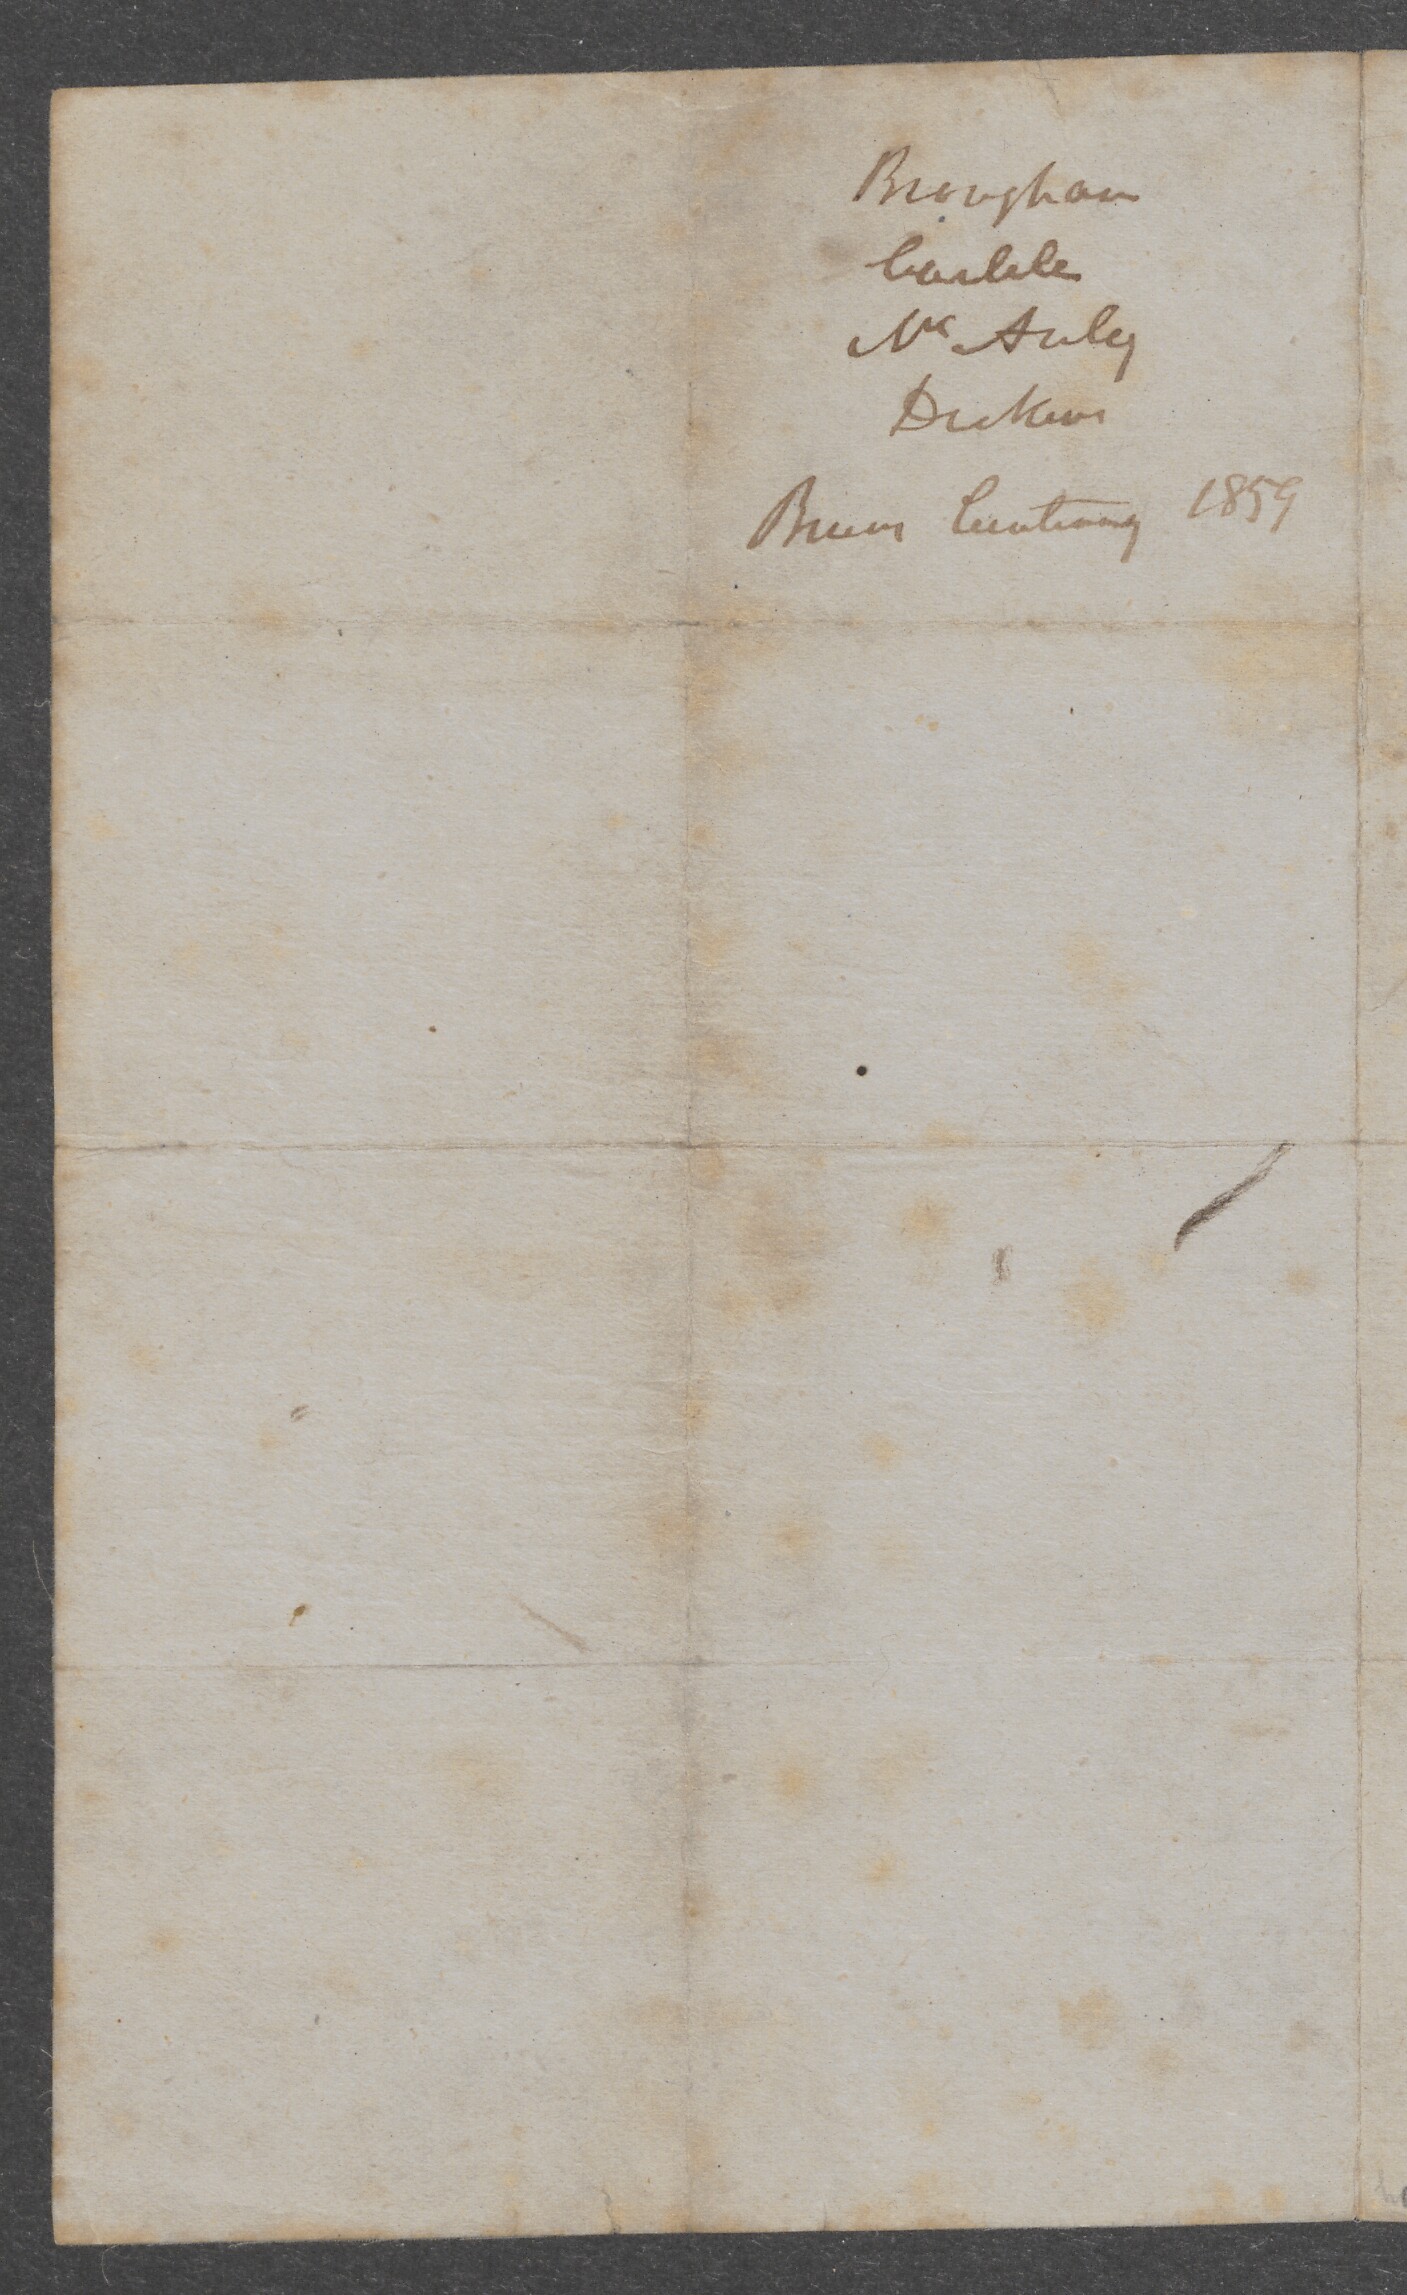 Brougham
Carlile
Mc Auley
Dickens
Burns Centenary 1859